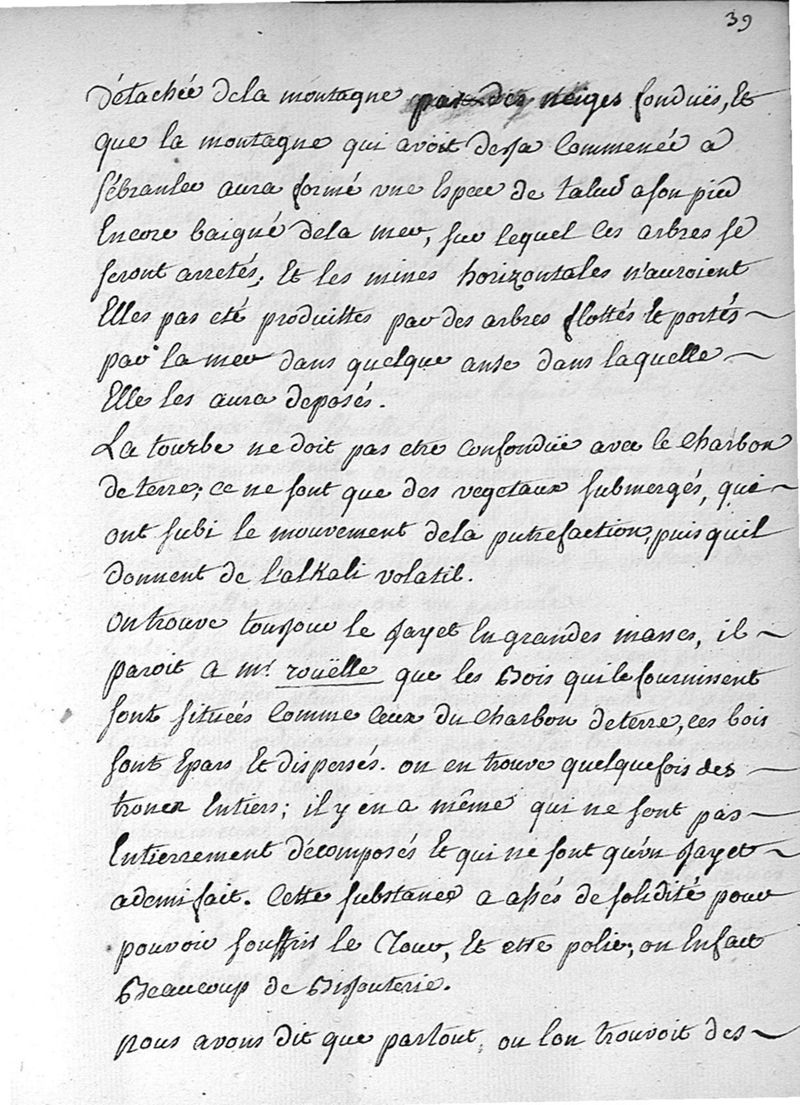 39
détachée dela montagne par des neiges fonduës, Et
que la montagne qui avoit deja Commencé a
sébranler aura formé une Espece de talus a son pied
Encore baigné dela mer, sur lequel Ces arbres se
seront arretés; Et les mines horizontales n'auroient
Elles pas eté produittes par des arbres flottés Et portés
par la mer dans quelque anse dans laquelle
Elle les aura deposés.
La tourbe ne doit pas etre Confonduë avec le Charbon
de terre; ce ne sont que des vegetaux submergés, qui
ont subi le mouvement dela putrefaction, puisquil
donnent de l'alkali volatil.
On trouve toujour le jayet En grandes masses, il
paroit a mr. rouëlle que les Bois qui le fournissent
sont situées Comme Ceux du Charbon de terre, ces bois
sont Epars Et dispersés. on en trouve quelquefois des
troncs Entiers; il y en a même qui ne sont pas
Entierrement décomposés Et qui ne sont qu'un jayet
a demi fait. Cette substance a assés de solidité pour
pouvoir souffrir le Tour, Et etre polie; on En fait
Beaucoup de Bijouterie.
nous avons dit que partout, ou lon trouvoit des